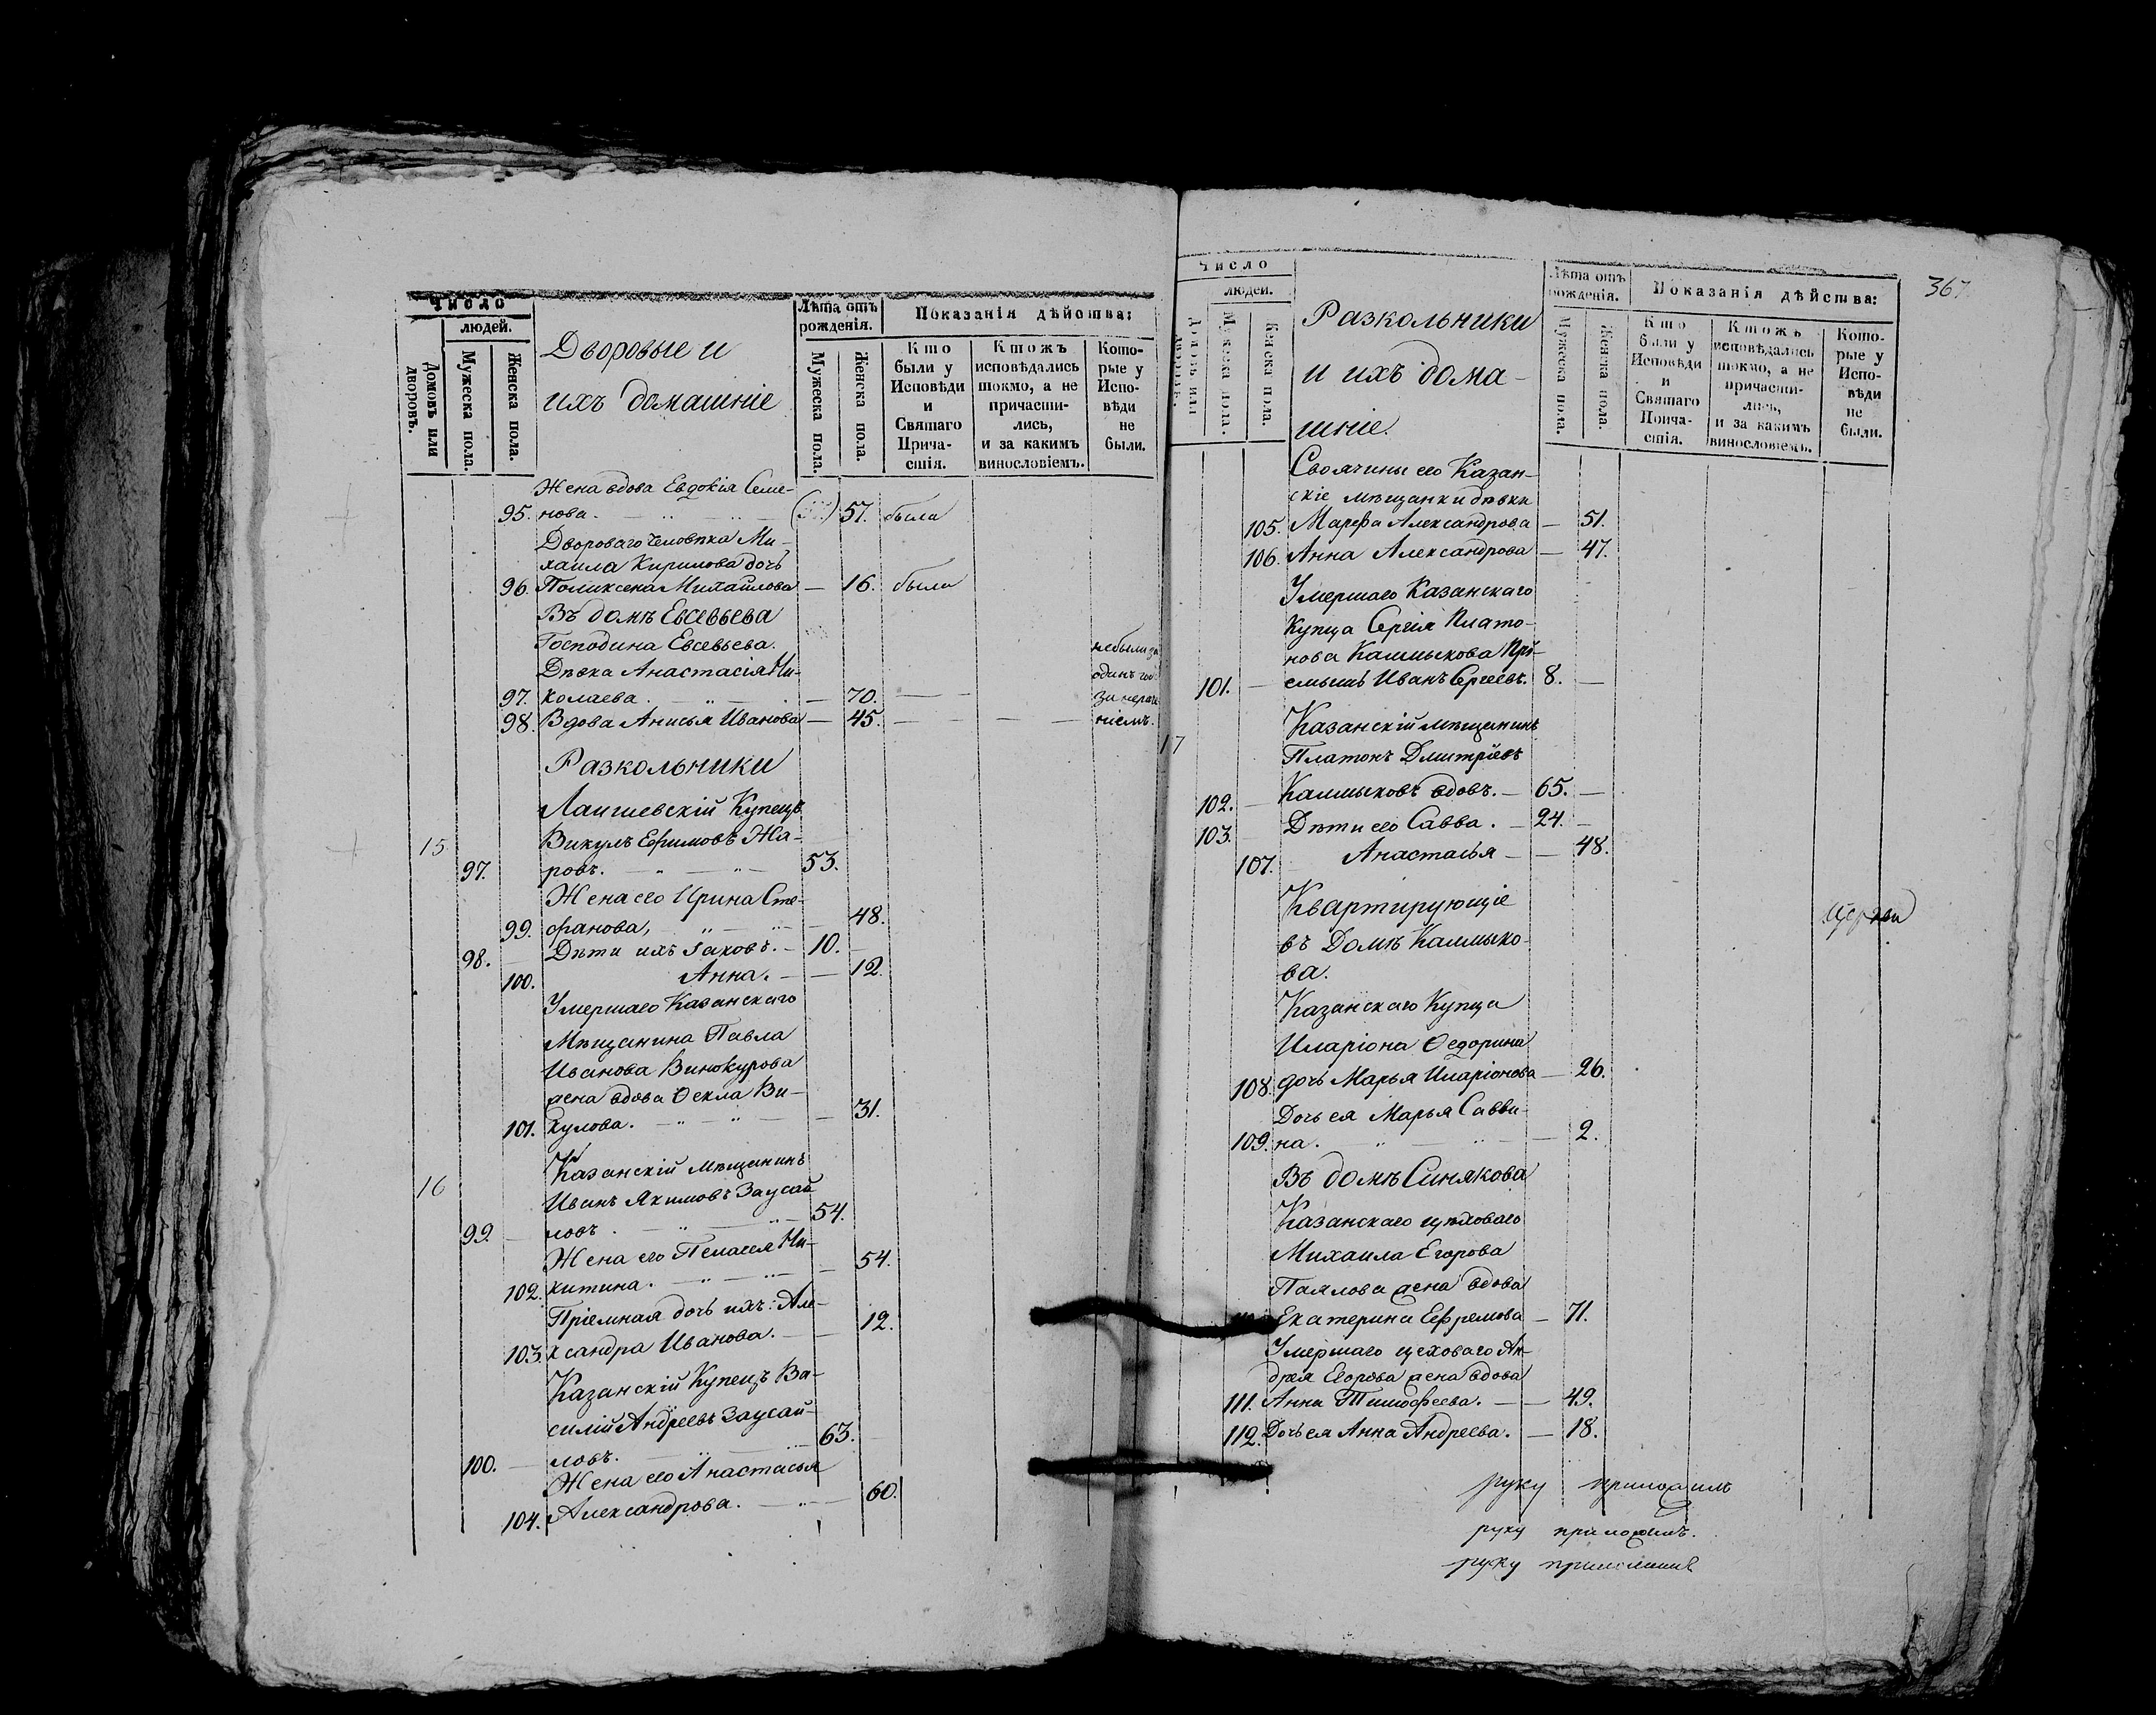 Число
людей.
Домовъ или дворовъ.
Мужеска пола.
Женска пола.
Дворовые и
ихъ домашніе
Лѣта отъ рожденія.
Мужеска пола.
Женска пола.
Показанія дѣйства:
Кто были у Исповѣди и Святаго Прича-стія.
Ктожъ исповѣдались токмо, а не причасти-лись, и за какимъ винословіемъ.
Кото-рые у Испо-вѣди не были.
Жена вдова Евдокія Семе-
95. нова. 57. была
Двороваго человѣка Ми-
хаила Кирилова дочь
96. Поликсена Михайлова — 16. была
Въ домѣ Евсевьева
Господина Евсевьева.
Дѣвка Анастасія Ни-
97. колаева. — 70. —
98. Вдова Анисья Иванова — 45. —
небыли за
одинъ
за
ніемъ.
Разкольники
Лаишевскій Купецъ
15 Викулъ Ефимовъ Жа-
97. ровъ. 53.
Жена его Ирина Сте-
99. фанова, — 48.
98. Дѣти ихъ Іаковъ. — 10. —
100. Анна. — 12.
Умершаго Казанскаго
Мѣщанина Павла
Иванова Винокурова
жена вдова Ѳекла Ви-
101. кулова. — 31.
Казанскій мѣщанинъ
16 Иванъ Якимовъ Заусай
99. — ловъ. 54.
Жена его Пелагея Ни-
102. китина. — 54.
Пріемная дочь ихъ: Але-
103. ксандра Иванова. — 12.
Казанскій Купецъ Ва-
силій Андреевъ Заусай-
100. — ловъ. 63.
Жена его Анастасья
104. Александрова. — 60.
367.
Число
людей.
Домовъ или дворовъ.
Мужеска пола.
Женска пола.
Разкольники
и ихъ дома-
шніе.
Лѣта отъ рожденія.
Мужеска пола.
Женска пола.
Показанія дѣйства:
Кто были у Исповѣди и Святаго Прича-стія.
Ктожъ исповѣдались токмо, а не причасти-лись, и за какимъ винословіемъ.
Кото-рые у Испо-вѣди не были.
Своячины его Казан-
скіе мѣщанки дѣвки
105. Марфа Александрова — 51.
106. Анна Александрова — 47.
Умершаго Казанскаго
Купца Сергія Плато-
нова Калмыкова Прі-
101. — емышъ Иванъ Сергеевъ. 8. —
Казанскій мѣщанинъ
17 Платонъ Дмитріевъ
102. — Калмыковъ вдовъ. — 65. —
103. Дѣти его Савва. — 24. —
107. Анастасья — 48.
Квартирующіе
въ Домѣ Калмыко-
ва.
Церкви
Казанскаго Купца
Иларіона Ѳедорина
108. дочь Марья Иларіонова — 26.
Дочь ея Марья Савви-
109. на. — 2.
Въ домѣ Синякова
Казанскаго цѣховаго
Михаила Егорова
Паялова жена вдова
Екатерина Ефремова — 71.
Умершаго цеховаго Ан-
дрея Егорова жена вдова
111. Анна Тимофеева. — 49.
112. Дочь ея Анна Андреева. — 18.
руку приложилъ
руку приложилъ.
руку приложилъ